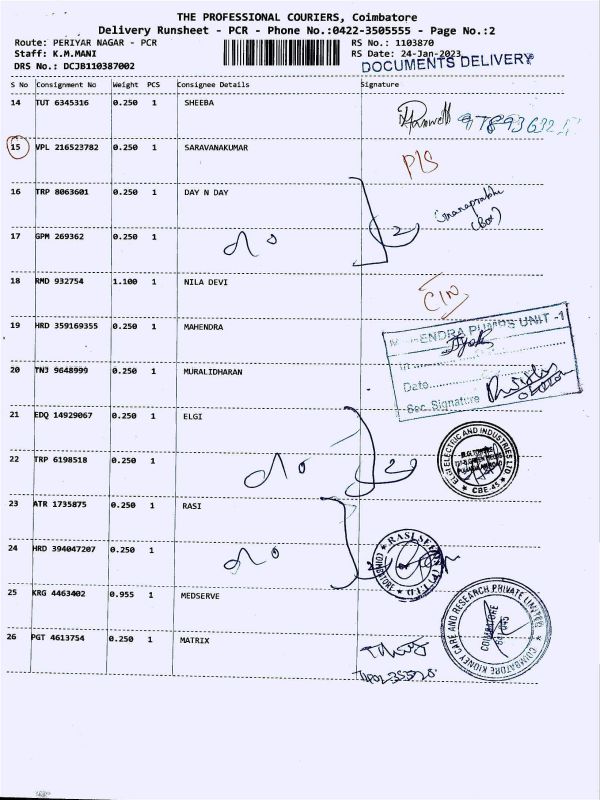 THE PROFESSIONAL COURIERS, Coimbatore
Delivery Runsheet - PCR - Phone No.:0422-3505555 - Page No.:2
Route: PERIYAR NAGAR - PCR RS No.: 1103870
Staff: K.M.MANI RS Date: 24-Jan-2023
DRS No.: DCJB110387002 DOCUMENTS DELIVERY
S No Consignment No Weight PCS Consignee Details Signature
14 TUT 6345316 0.250 1 SHEEBA
15 VPL 216523782 0.250 1 SARAVANAKUMAR
16 TRP 8063601 0.250 1 DAY N DAY
2
(Box)
17 GPM 269362 0.250 1
18 RMD 932754 1.100 1 NILA DEVI
19 HRD 359169355 0.250 1 MAHENDRA
ENDRA PUMPS UNIT -1
20 TNJ 9648999 0.250 1 MURALIDHARAN
Date
Sec. Signature
21 EDQ 14929067 0.250 1 ELGI
ELGI ELECTRIC AND INDUSTRIES LTD
CBE-45
22 TRP 6198518 0.250 1
2
23 ATR 1735875 0.250 1 RASI
24 HRD 394047207 0.250 1
RASI SEEDS (P) LTD
25 KRG 4463402 0.955 1 MEDSERVE
COIMBATORE KIDNEY CARE AND RESEARCH PRIVATE LIMITED
COIMBATORE
641 045
26 PGT 4613754 0.250 1 MATRIX